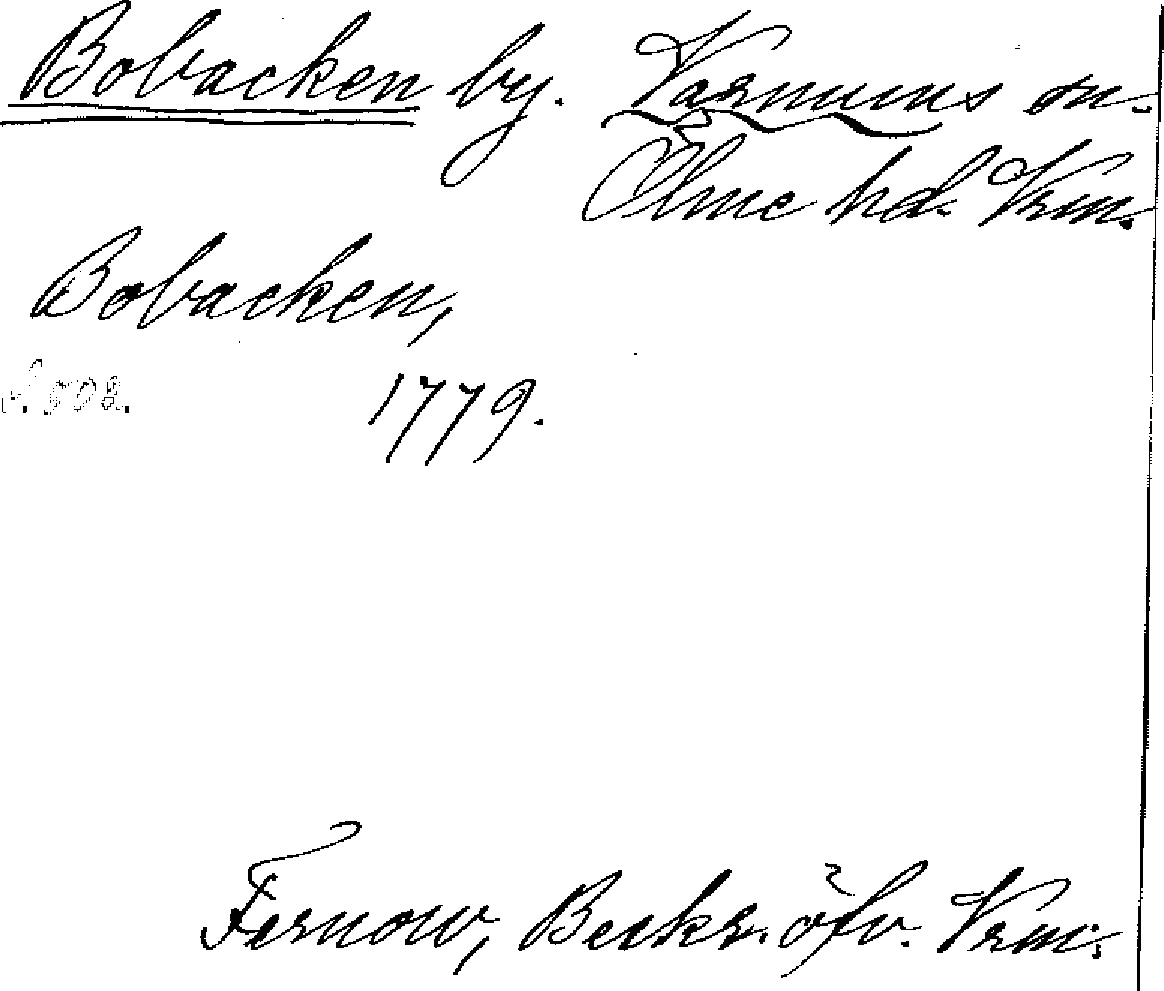 Bobacken by. Varnums sn.
Ölme hd. Vrm.
Bobacken,
s. 502. 1779.
Fernow, Beskr. öfv. Vrm.